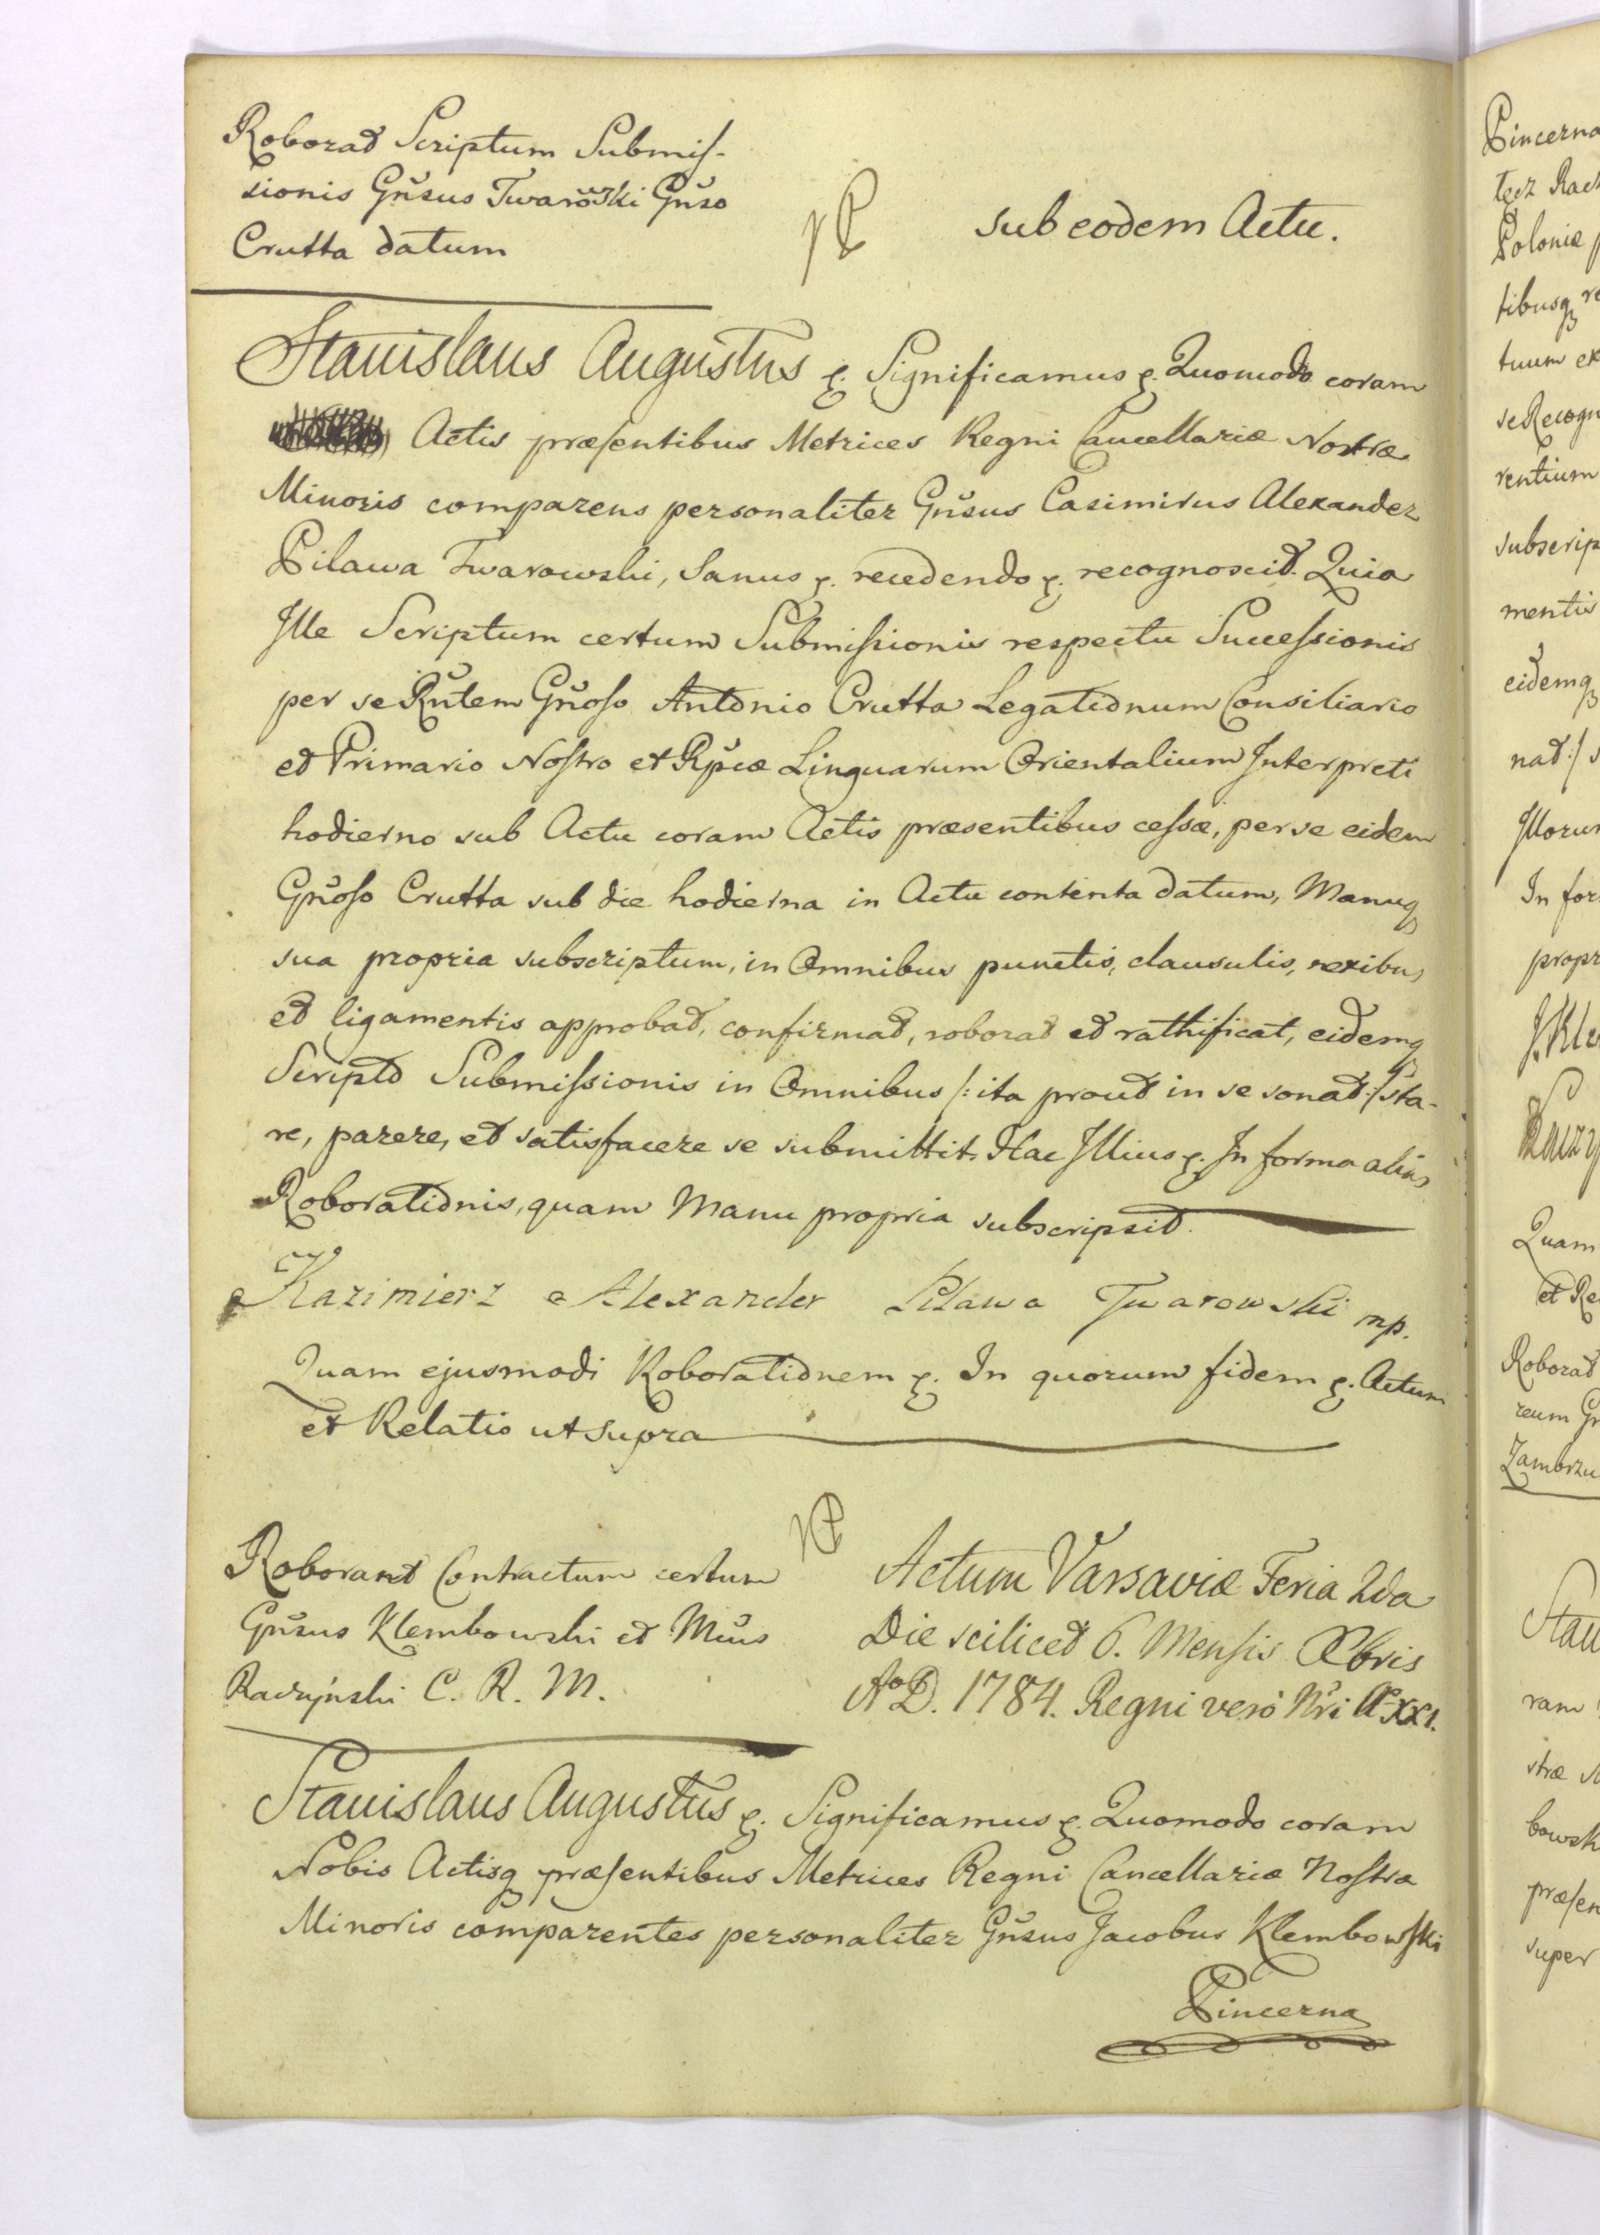 Roborat Scriptum Submiſ-
sionis Gnsus Twarowski Gnso
Crutta datum
sub eodem Actu.
Stanislaus Augustus &. Significamus &. Quomodo coram
Actis præſentibus Metrices Regni Cancellariæ Nostræ
Minoris comparens personaliter Gnsus Casimirus Alexander
Pilawa Twarowski, Sanus &. recedendo &. recognoscit. Quia
Ille Scriptum certum Submiſsionis respectu Succeſsionis
per se Rntem Gnoſo Antonio Crutta Legationum Consiliario
et Primario Noſtro et Rpcæ Linguarum Orientalium Interpreti
hodierno sub Actu coram Actis præsentibus ceſsæ, per se eidem
Gnoſo Crutta sub die hodierna in Actu contenta datum, Manuq
sua propria subscriptum, in Omnibus punctis, clausulis, nexibus
et ligamentis approbat, confirmat, roborat et rathificat, eidemq
Scripto Submiſsionis in Omnibus /: ita prout in se sonat :/ sta-
re, parere, et satisfacere se submittit. Hac Illius &. In forma alias
Roborationis, quam Manu propria subscripsit.
Kazimierz Alexander Pilawa Twarowski mp.
Quam ejusmodi Roborationem &. In quorum fidem &. Actum
et Relatio ut supra
Roborant Contractum certum
Gnsus Klembowski et Mcus
Raczyński C. R. M.
Actum Varsaviæ Feria 2da
Die scilicet 6. Menſis Xbris
Ao D. 1784. Regni vero Nri Ao XXI.
Stanislaus Augustus &. Significamus &. Quomodo coram
Nobis Actisq præſentibus Metrices Regni Cancellariæ Noſtræ
Minoris comparentes personaliter Gnsus Jacobus Klembowſki
Pincerna